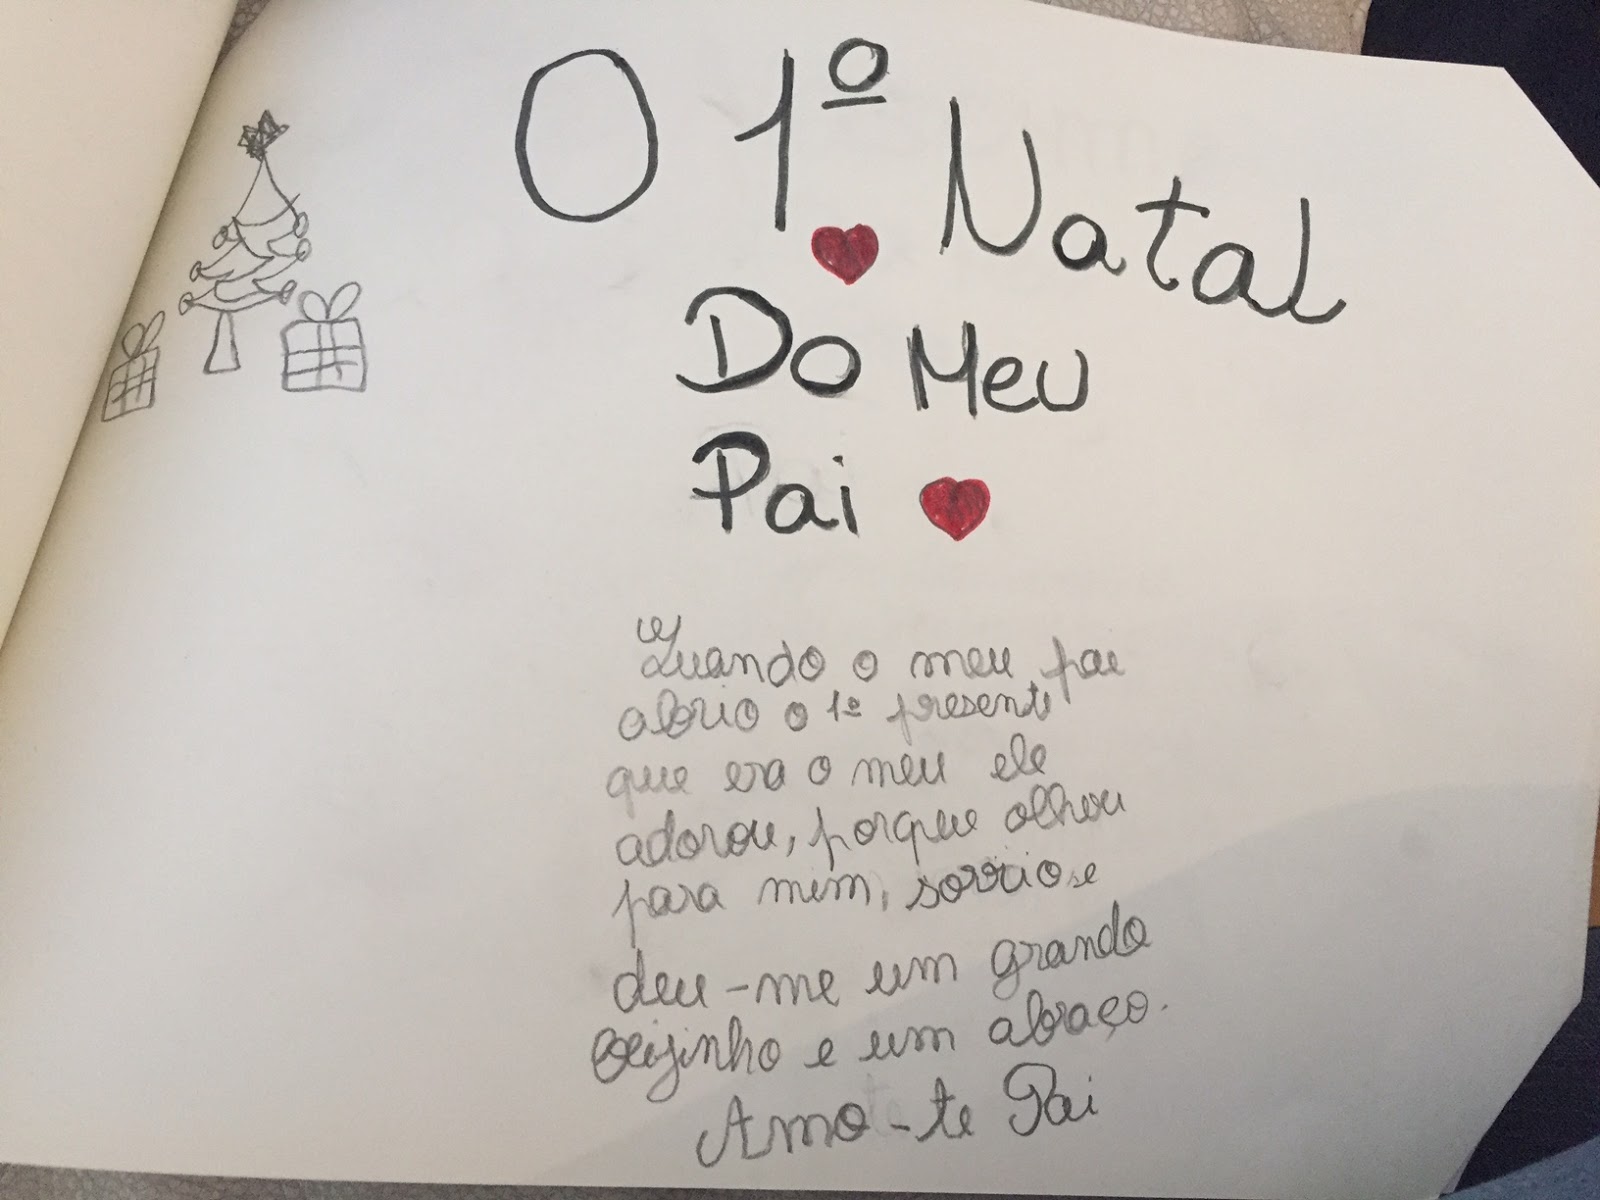 O 1º Natal
Do Meu
Pai
Quando o meu pai
abrio o 1º presente
que era o meu ele
adorou, porque olhou
para mim, sorrio e
deu-me um grande
beijinho e um abraço.
Amo-te Pai